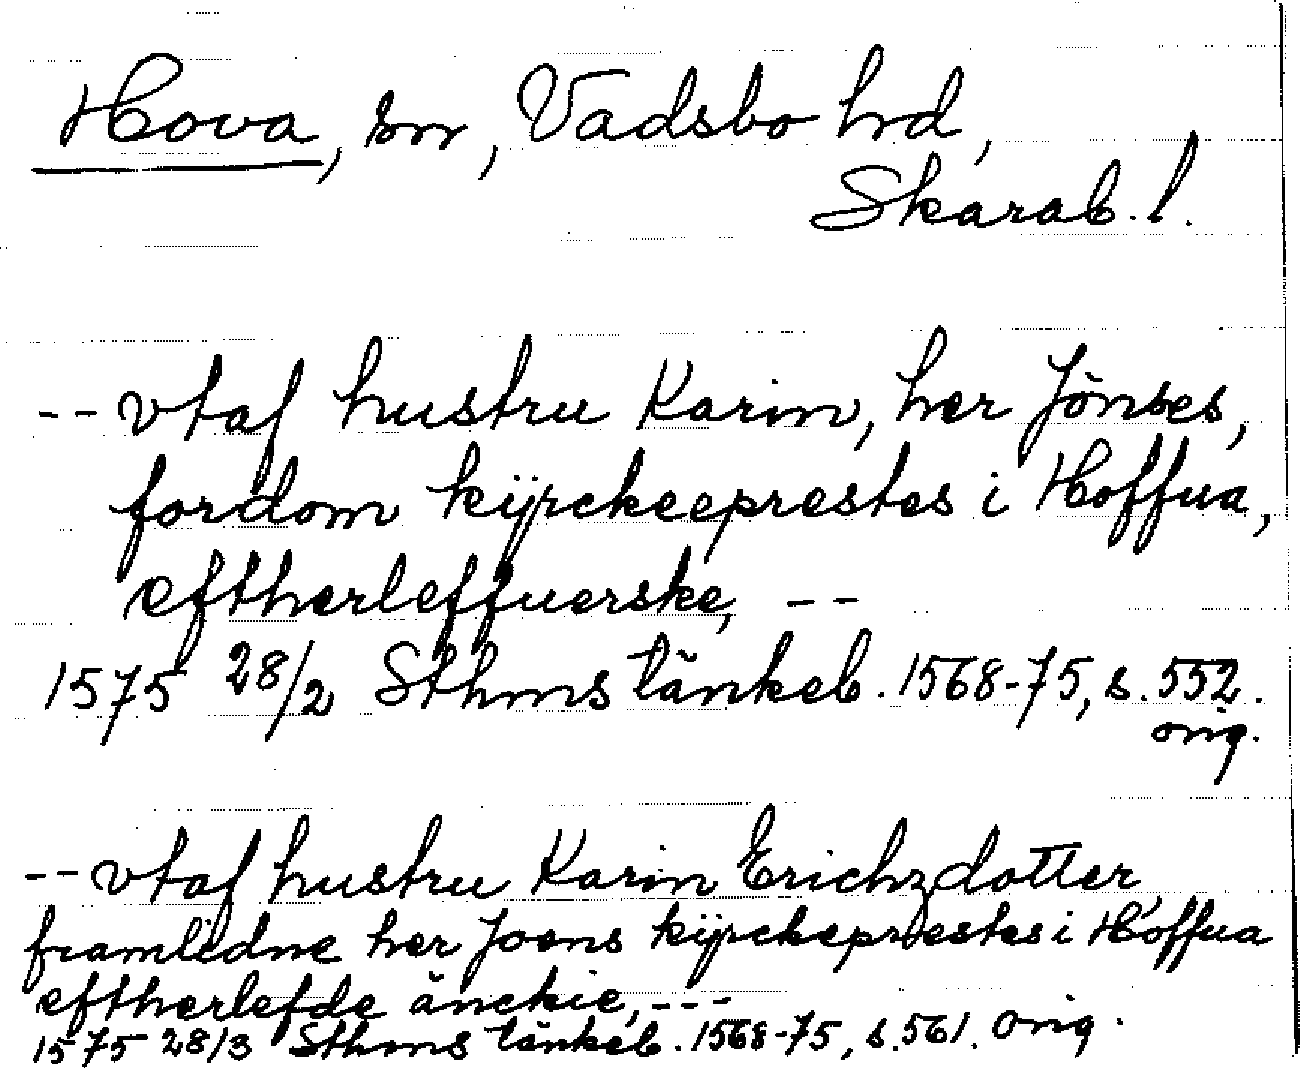 Hova, sn, Vadsbo hrd,
Skarab. l.
-- vtaf hustru Karin, her Jönses,
fordom kÿrckeeprestes i Hoffua,
eftherleffuerske, --
1575 28/2 Sthms tänkeb. 1568-75, s. 552.
orig.
-- vtaf hustru Karin Erichzdotter
framlidne her Joens kÿrckeprestes i Hoffua
eftherlefde änckie, ---
1575 28/3 Sthms tänkeb. 1568-75, s. 561. orig.